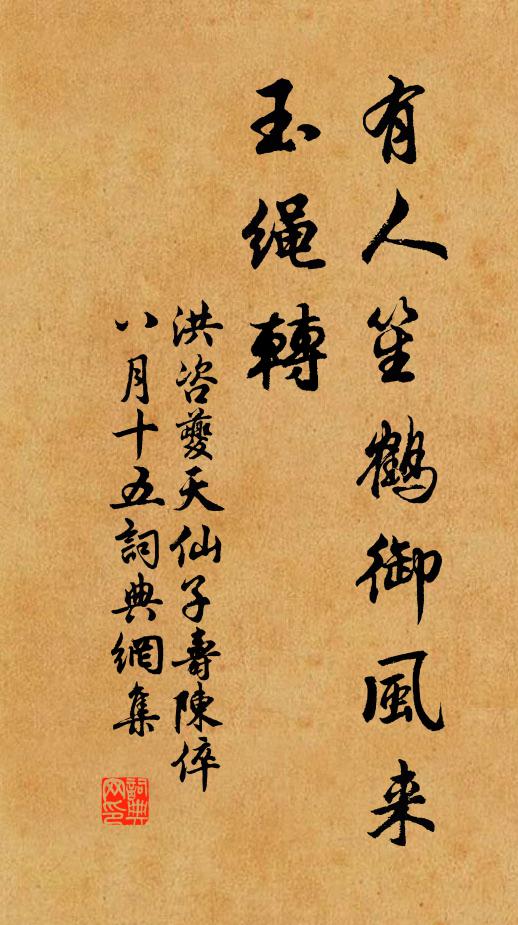 有人笙鶴御風来
玉繩轉
洪咨夔天仙子壽陳倅
八月十五詞典網集
詞典网印